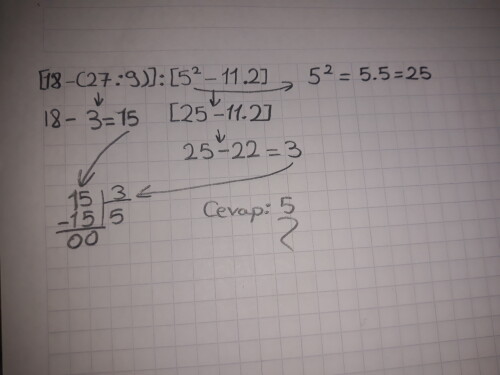 [18-(27:9)]:[5²-11.2] 5²=5.5=25
18-3=15 [25-11.2]
25-22=3
15 3
-15 5
00
Cevap: 5